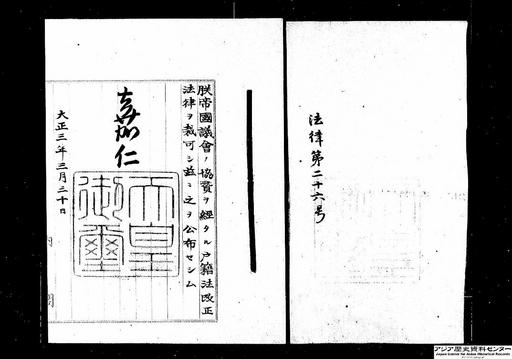 法律第二十六号
朕帝國議會ノ協賛ヲ經タル戸籍法改正
法律ヲ裁可シ茲ニ之ヲ公布セシム
嘉仁
天皇
御璽
大正三年三月三十日
アジア歴史資料センター
Japan Center for Asian Historical Records